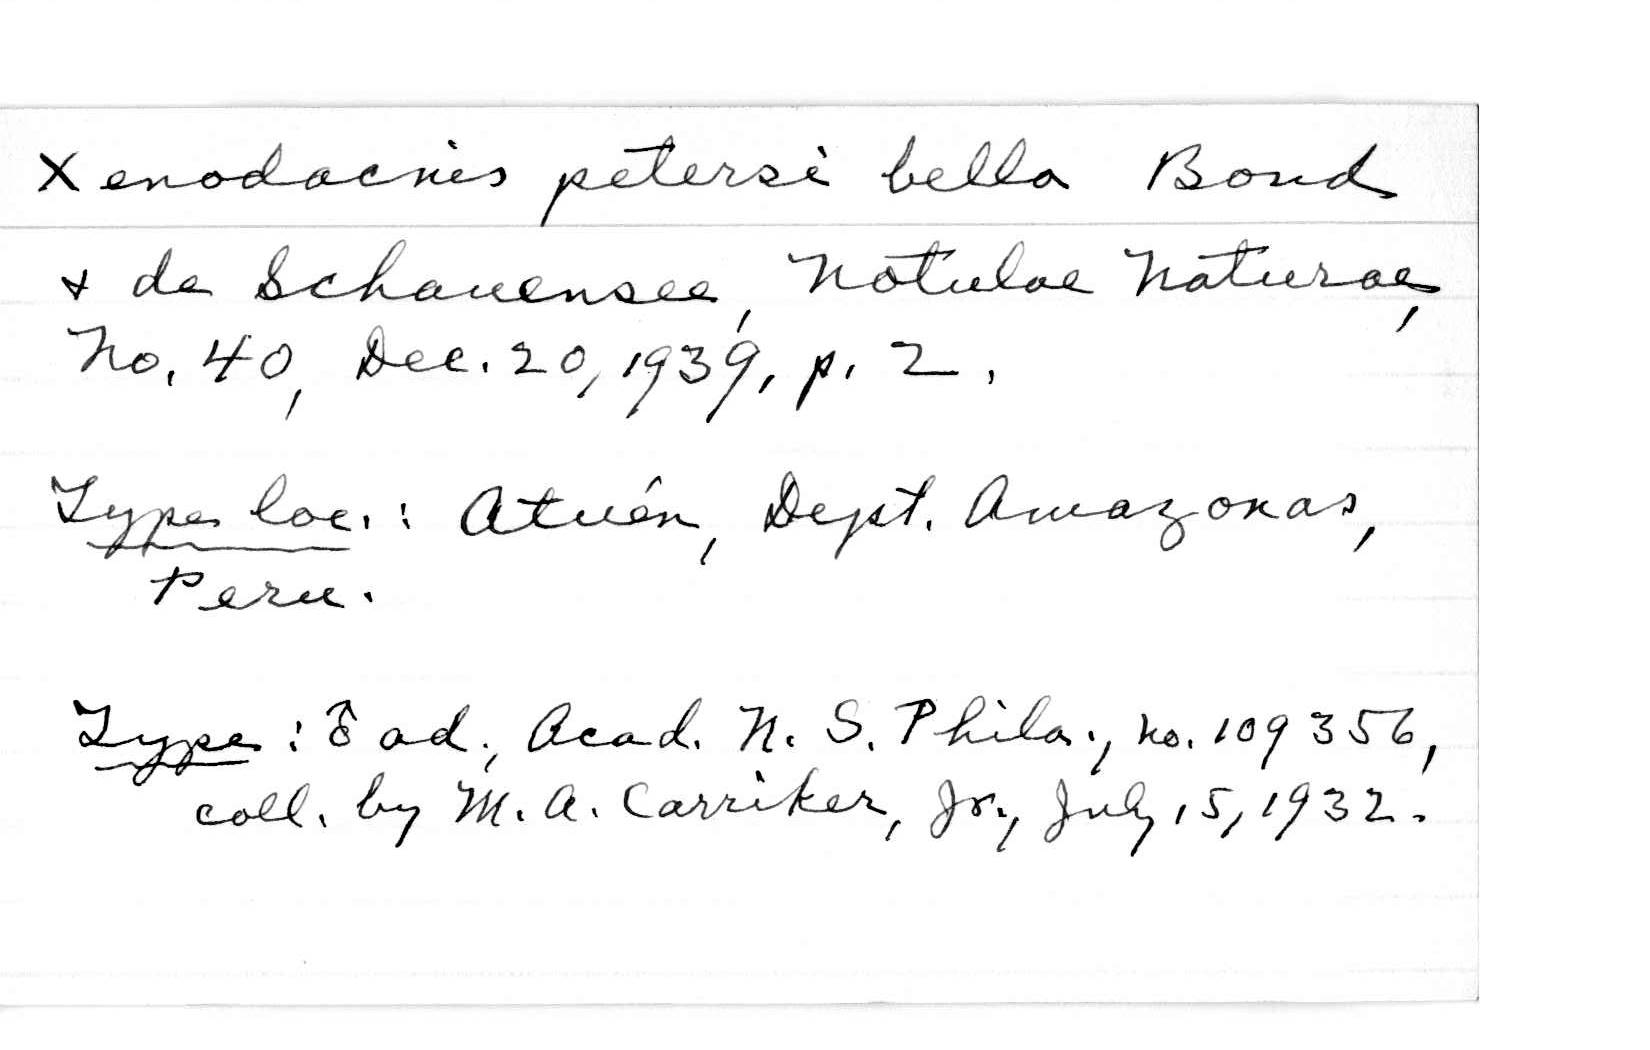 Xenodacnis petersi bella Bond
& de Schauensee, Notulae Naturae,
No. 40, Dec. 20, 1939, p. 2.
Type loc.: Atuén, Dept. Amazonas,
Peru.
Type: ♂ ad., Acad. N. S. Phila., no. 109356,
coll. by M. A. Carriker, Jr., July 15, 1932.